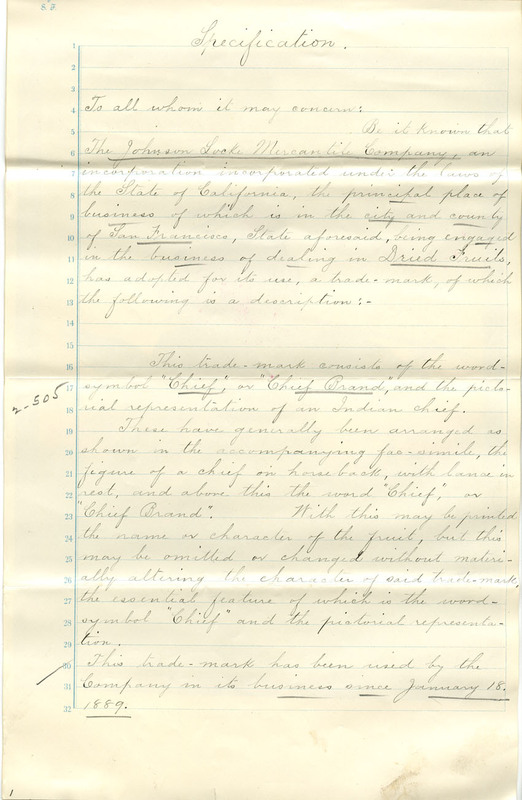 Specification.
1
2
3
4 To all whom it may concern:
5 Be it known that
6 The Johnson Locke Mercantile Company, an
7 incorporation incorporated under the laws of
8 the State of California, the principal place of
9 business of which is in the city and county
10 of San Francisco, State aforesaid, being engaged
11 in the business of dealing in Dried Fruits,
12 has adopted for its use, a trade-mark, of which
13 the following is a description:-
14
15
16 This trade-mark consists of the word-
2-505
17 symbol "Chief", or "Chief Brand", and the picto-
18 rial representation of an Indian chief.
19 These have generally been arranged as
20 shown in the accompanying fac-simile, the
21 figure of a chief on horseback, with lance in
22 rest, and above this the word "Chief", or
23 "Chief Brand". With this may be printed
24 the name or character of the fruit, but this
25 may be omitted or changed without materi-
26 ally altering the character of said trade-mark,
27 the essential feature of which is the word-
28 symbol "Chief" and the pictorial representa-
29 tion.
30 This trade-mark has been used by the
31 Company in its business since January 18.
32 1889.
1